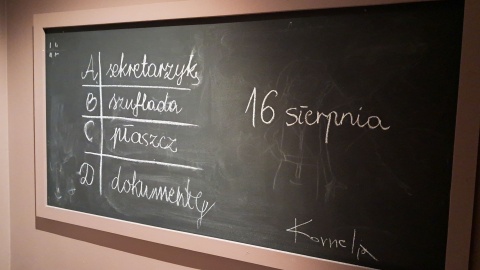 A sekretarzyk
B szuflada
C płaszcz
D dokumenty
16 sierpnia
Kornelia